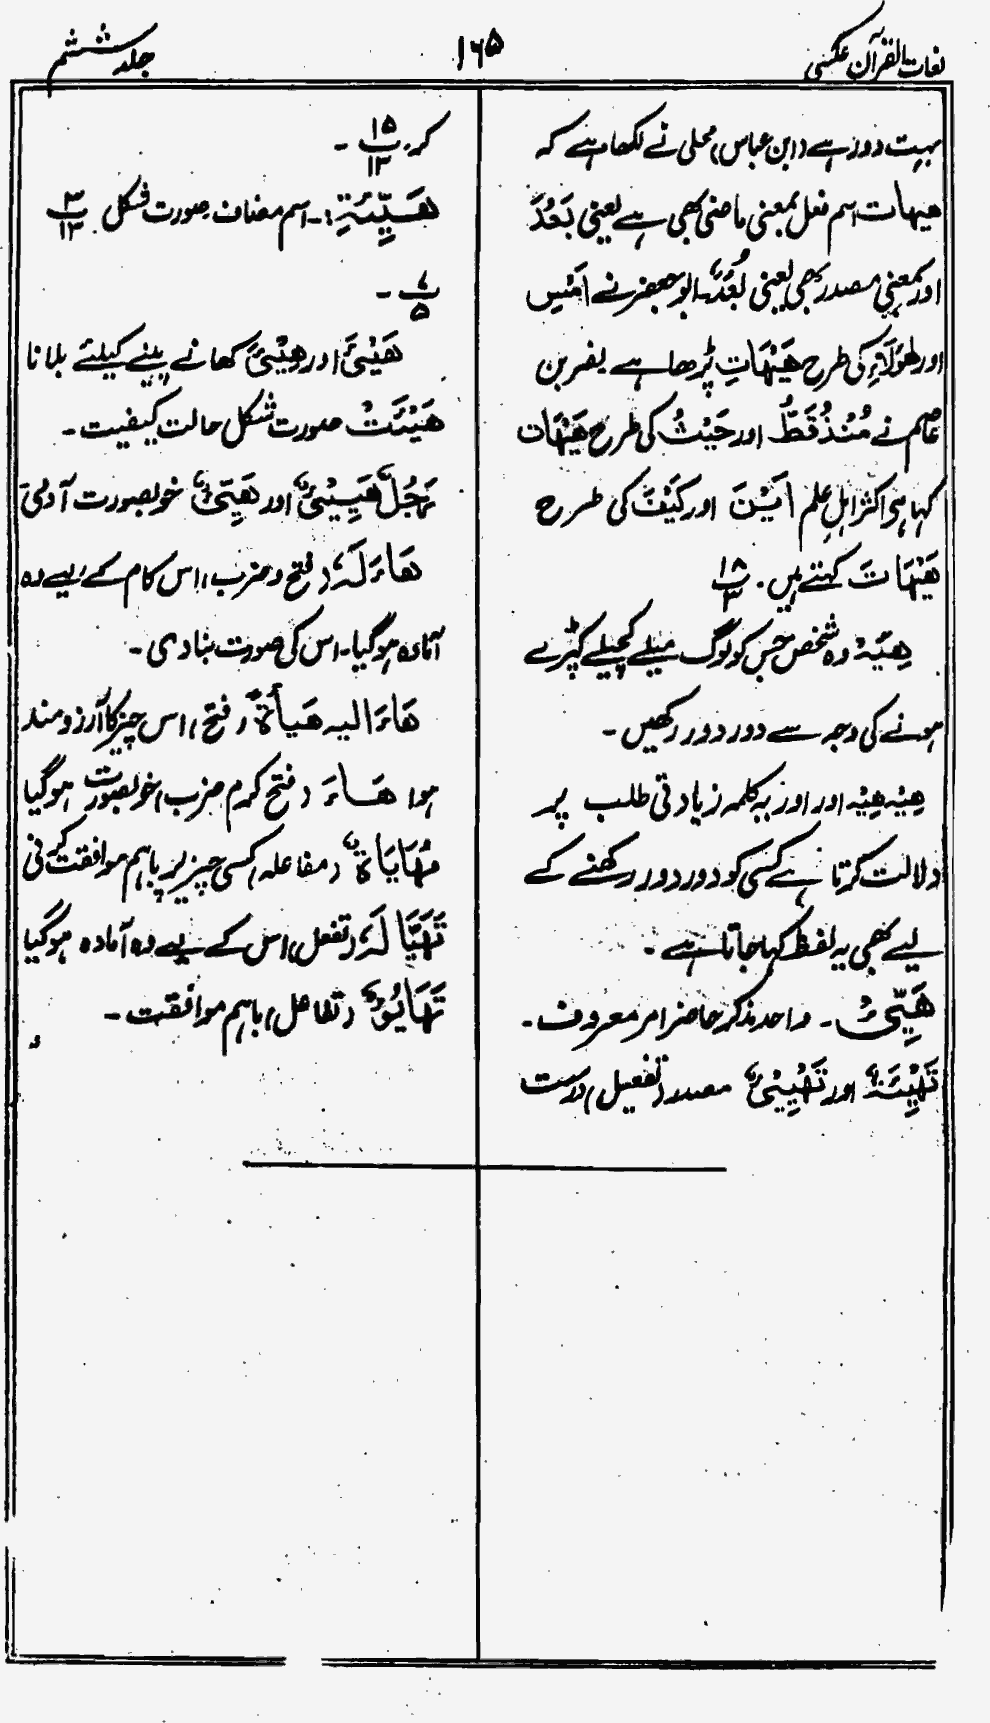 لغات القرآن عکسی
۱۶۵
جلد ششم
بہت دور ہے (ابن عباس) محلی نے لکھا ہے کہ
ھیھات اسم فعل بمعنی ماضی بھی ہے یعنی بَعُدَ
اور بمعنی مصدر بھی یعنی بُعْدٌ۔ ابو جعفر نے اَمْسِ
اور ھٰؤُلَاءِ کی طرح ھَیْھَاتِ پڑھا ہے نصر بن
عاصم نے مُنْذُ قَطُّ اور حَیْثُ کی طرح ھَیْھَاتُ
کہا ہی اکثر اہل علم اَیْنَ اور کَیْفَ کی طرح
ھَیْھَاتَ کہتے ہیں۔ ۱۸/۳
ھِیَہْ وہ شخص جس کو لوگ میلے کچیلے کپڑے
ہونے کی وجہ سے دور دور رکھیں۔
ھِیْہ ھِیْہ اور اور یہ کلمہ زیادتی طلب پر
دلالت کرتا ہے کسی کو دور دور رکھنے کے
لیے بھی یہ لفظ کہا جاتا ہے۔
ھَیِّئْ۔ واحد مذکر حاضر امر معروف۔
تَھْیِئَۃٌ اور تَھْیِیْئٌ مصدر (تفعیل) درست
کر۔ ۱۵/۱۳ -
ھَیْئَۃِ:۔ اسم مضاف صورت شکل ۳/۱۳۔
۷/۵ -
ھَیْئَ اور ھِیْئَ کھانے پینے کیلئے بلانا
ھَیْئَتْ صورت شکل حالت کیفیت۔
رَجُلٌ ھَیِیْئٌ اور ھَیِّئٌ خوبصورت آدمی
ھَاءَ لَہٗ (فتح و ضرب) اس کام کے لیے وہ
آمادہ ہو گیا۔ اس کی صورت بنا دی۔
ھَاءَ الیہ ھَیأَۃً (فتح) اس چیز کا آرزو مند
ہوا ھَاءَ (فتح کرم ضرب) خوبصورت ہو گیا
مُھَایَاۃٌ (مفاعلہ) کسی چیز پر باہم موافقت کرنی
تَھَیَّا لَہٗ (تفعل) اس کے لیے وہ آمادہ ہو گیا
تَھَایُؤٌ (تفاعل) باہم موافقت۔